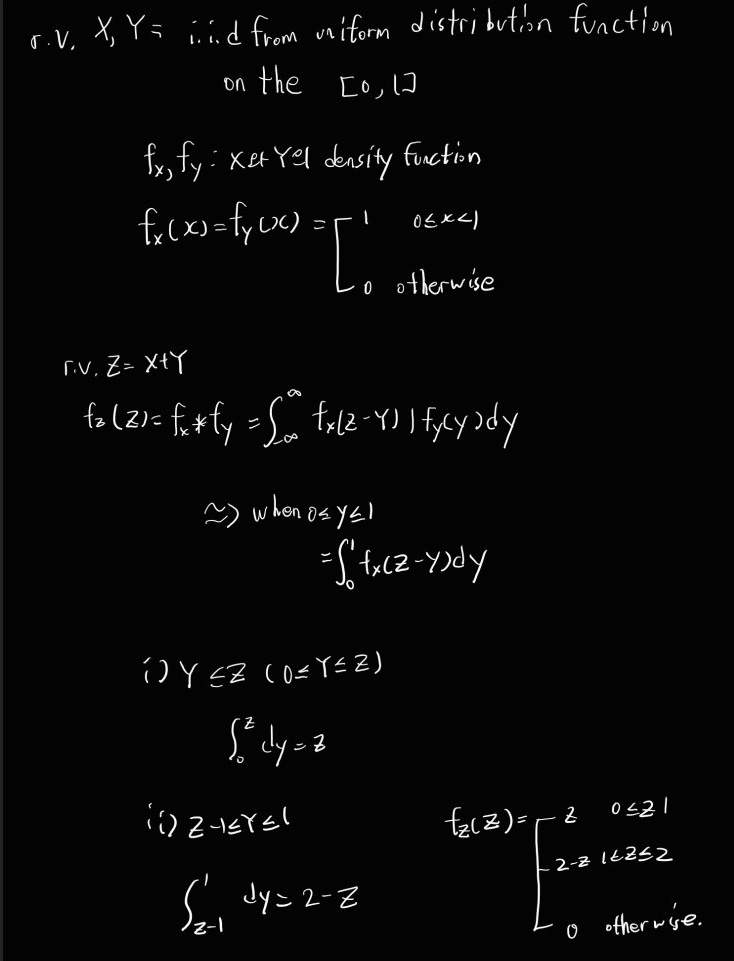 r.v. X, Y = i.i.d from uniform distribution function
on the [0, 1]
fx, fy : X와 Y의 density function
fx(x) = fy(x) = [ 1 0≤x<1
0 otherwise
r.v. Z = X+Y
fz(Z) = fx * fy = ∫_{-∞}^{∞} fx(z-Y) | fy(y) dy
≈) when 0≤y≤1
= ∫_0^1 fx(Z-Y)dy
i) Y ≤ Z (0≤Y≤Z)
∫_0^z dy = z
ii) Z-1≤Y≤1
∫_{z-1}^1 dy = 2-Z
fz(Z) = [ z 0≤z 1
2-z 1<z≤2
0 otherwise.